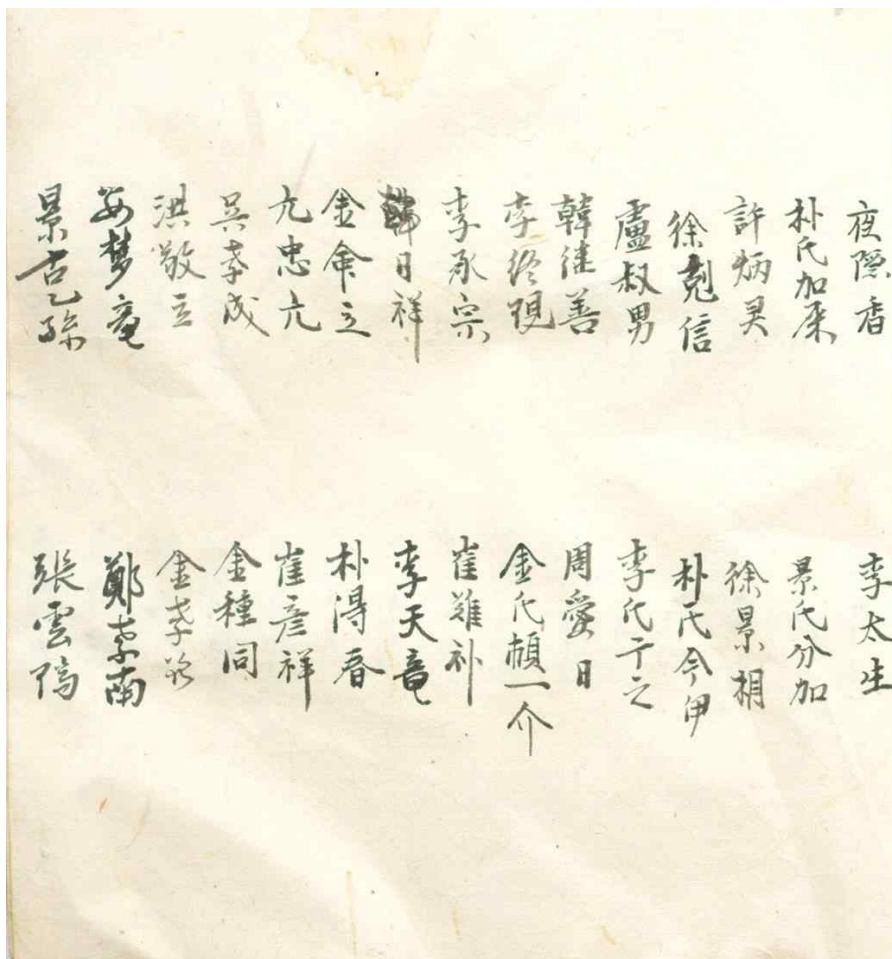 夜隠香
朴氏加屎
許炳
徐剋信
盧叔男
韓継善
李終現
李承宗
韓日祥
金命立
九忠立
吳孝成
洪敬立
夢竜
景古乙孫
李太生
景氏分加
徐景相
朴氏今伊
李氏之
周愛日
金氏頓一介
崔雄补
李天竜
朴得春
崔彦祥
金種同
金孝
鄭孝南
張雲